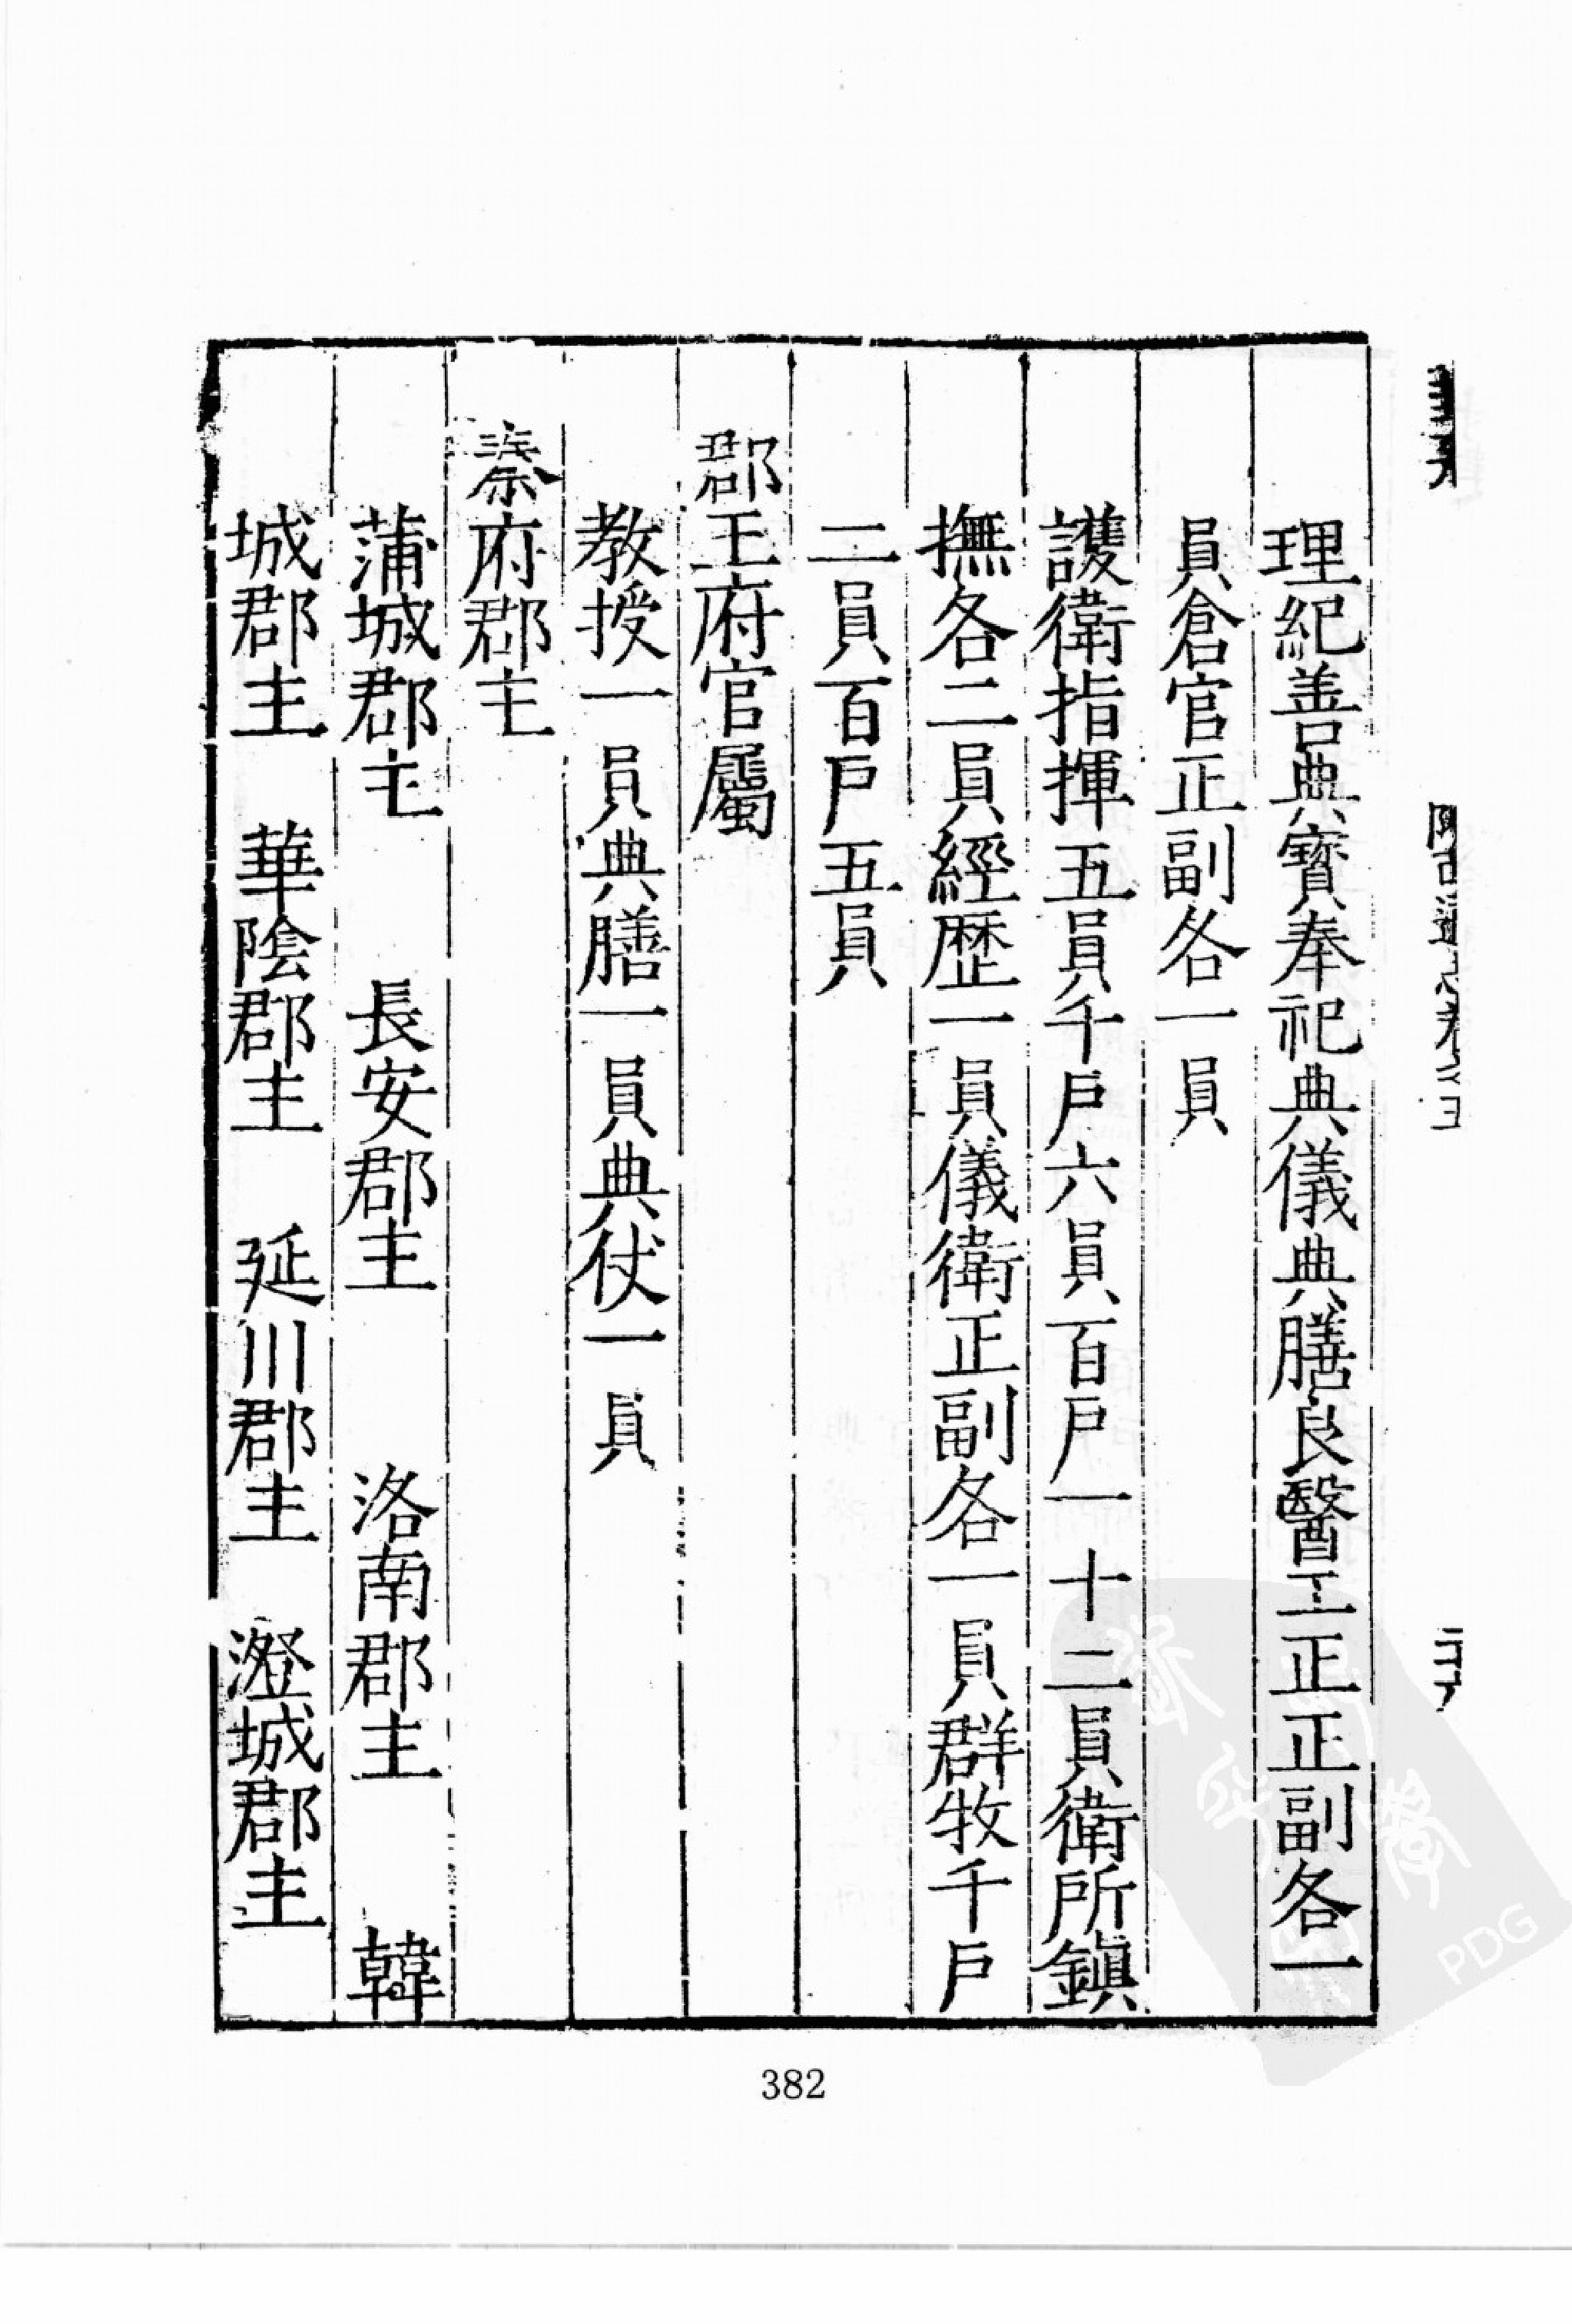 理紀善典寶奉祀典儀典膳良醫工正正副各一
員倉官正副各一員
護衛指揮五員千戶六員百戶一十二員衛所鎮
撫各二員經歷一員儀衛正副各一員群牧千戶
二員百戶五員
郡王府官屬
教授一員典膳一員典仗一員
秦府郡主
蒲城郡主 長安郡主 洛南郡主 韓
城郡主 華陰郡主 延川郡主 澄城郡主
382
PDG